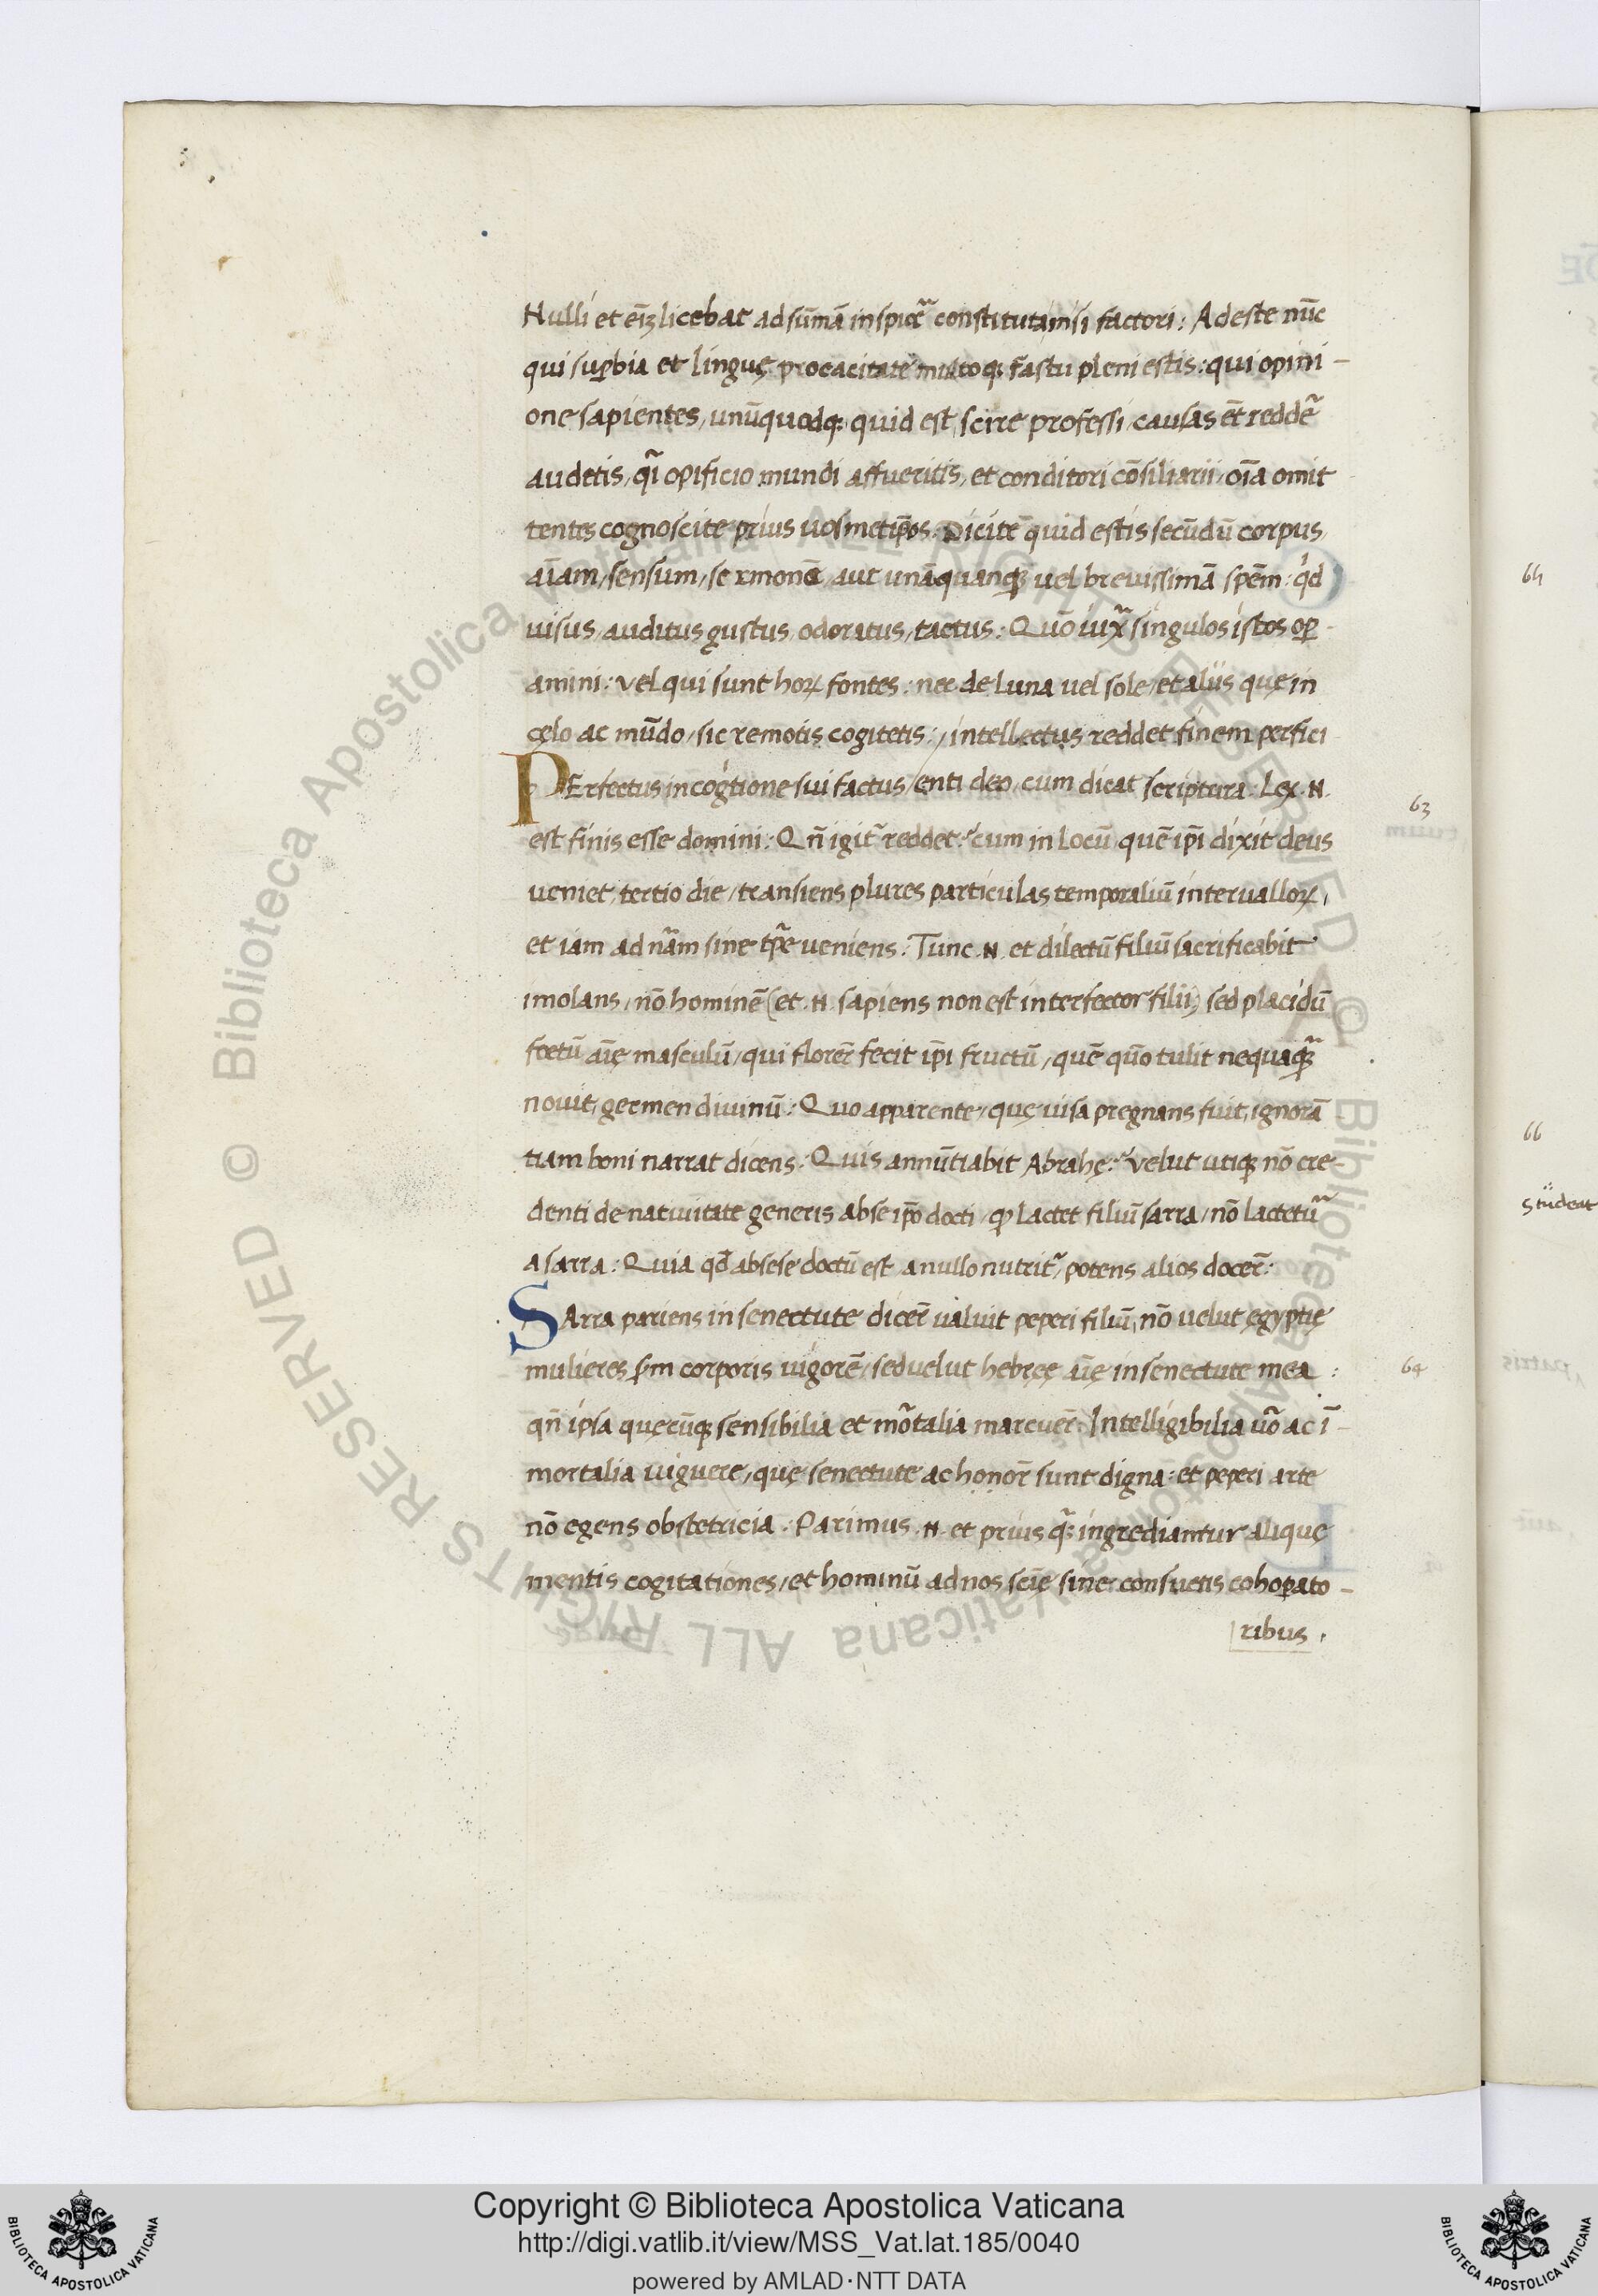 Nulli et eiȝ licebat ad sūmā inspicer̃ constituta nisi factori: Adeste nūc
qui suꝑbia et linguę procacitate multoqꝫ fastu pleni estis: qui opini-
one sapientes, unūquodqꝫ quid est, scire professi, causas et̄ redder̃
audetis, qͥ opificio mundi affueritis, et conditori cōsiliarii, oīa omit
tentes cognoscite prius uosmetip̄os. Dicite quid estis secūdū corpus,
aīam, sensum, sermonē, aut unāquanqꝫ uel breuissimā spēm: qͥd
uisus, auditus gustus, odoratus, tactus: Quō iuxͣ singulos istos oꝑ-
amini: vel qui sunt hoꝝ fontes: nec de luna uel sole, et aliis quę in
cęlo ac mūdo, sic remotis cogitetis: intellectus reddet finem perfici
PErfectus in cogͥtione sui factus, enti deo, cum dicat scriptura: Lex .N.
est finis esse domini: Qn̄ igit̃ reddet? cum in locū quē ip̄i dixit deus
ueniet, tertio die, transiens plures particulas temporaliū interualloꝝ,
et iam ad nām sine tp̄re ueniens: Tunc .N. et dilectū filiū sacrificabit
imolans, nō hominē (et .N. sapiens non est interfector filii) sed placidū
foetū aīę masculū, qui florer̃ fecit ip̄i fructū, quē quō tulit nequaqꝫ̃
nouit, germen diuinū: Quo apparente, quę uisa pregnans fuit, ignorā
tiam boni narrat dicens: Quis annūtiabit Abrahę? velut utiqꝫ nō cre-
denti de natiuitate generis ab se ip̄o docti, ꝙ lactet filiū sarra, nō lactetur̃
a sarra: Quia qđ ab sese doctū est, a nullo nutrit̃, potens alios docer̃:
SArra pariens in senectute dicer̃ ualuit peperi filiū, nō uelut ęgyptię
mulieres sꝫm corporis uigorē, sed uelut hebręę aīę in senectute mea:
qn̄ ipsa quęcūqꝫ sensibilia et mōrtalia marcuer̃: Intelligibilia uō ac ī-
mortalia uiguere, quę senectute ac honor̃ sunt digna: et peperi arte
nō egens obstetricia. Parimus .N. et prius qꝫ̃ ingrediantur aliquę
mentis cogitationes, et hominū ad nos scīę sine consuetis cohoꝑato-
ribus.
63
64
64
66
studeat
© Biblioteca Apostolica Vaticana ALL RIGHTS RESERVED
Copyright © Biblioteca Apostolica Vaticana
http://digi.vatlib.it/view/MSS_Vat.lat.185/0040
powered by AMLAD·NTT DATA
BIBLIOTECA APOSTOLICA VATICANA
BIBLIOTECA APOSTOLICA VATICANA